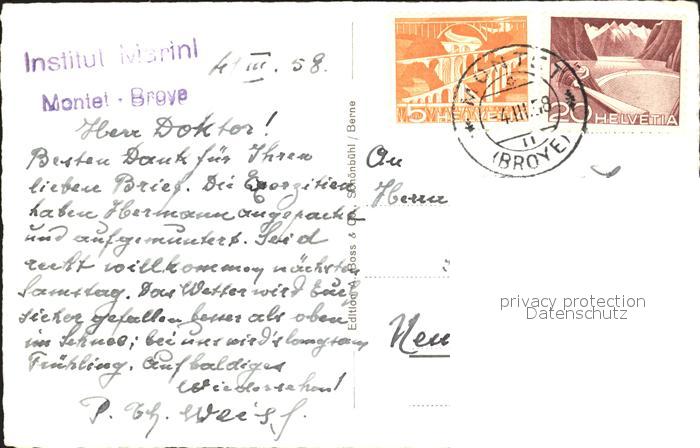 Institut Marini
Montet - Broye
4. III. 58.
Herr Doktor!
Besten Dank für Ihren
lieben Brief. Die Exerzitien
haben Hermann angepackt
und aufgemuntert. Seid
recht willkommen nächsten
Samstag. Das Wetter wird Euch
sicher gefallen besser als oben
im Schnee; bei uns wird's langsam
Frühling. Auf baldiges
Wiedersehen!
P. Th. Weiss.
Edition A. Boss & Co. Schönbühl / Berne
5 HELVETIA
20 HELVETIA
MONTET
-4.III.58
(BROYE)
An
Herrn
Neu
privacy protection
Datenschutz